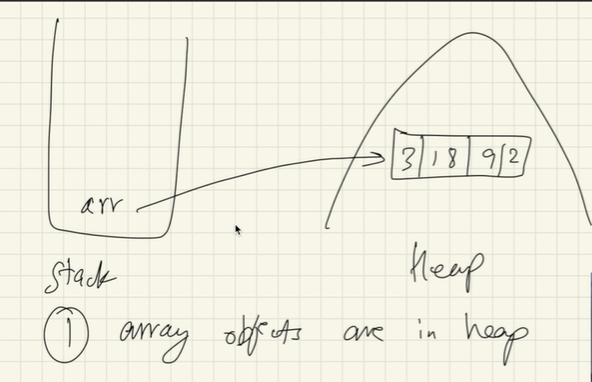 3 18 9 2
arr
Stack
Heap
1 array objects are in heap